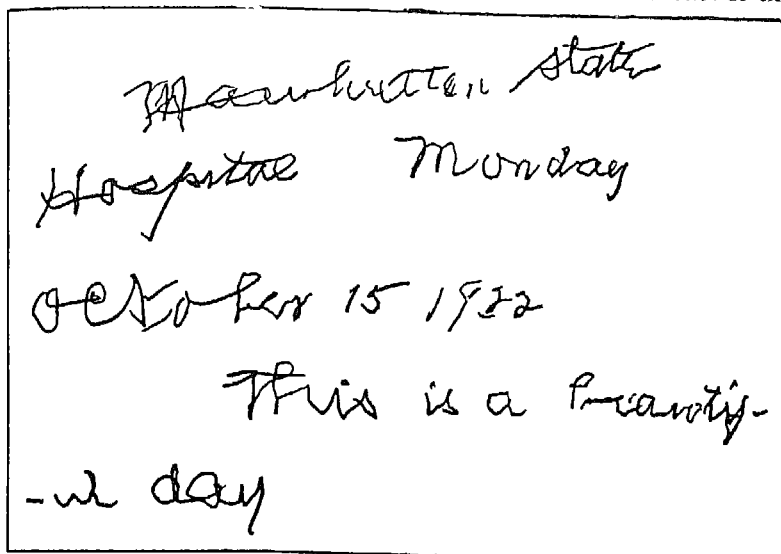 Manhutten State
Hospital Monday
October 15 1922
This is a
day